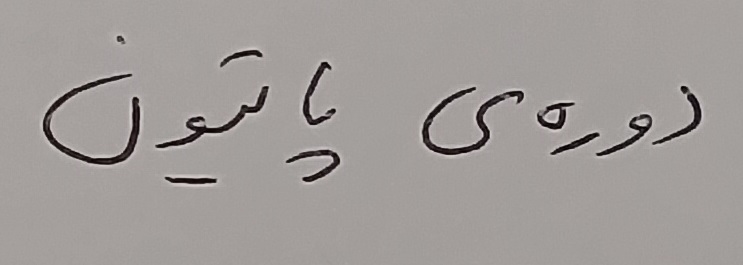 دوره‌ی پاتیون